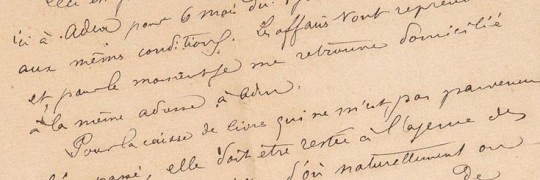 ici à Aden pour 6 mois du
aux mêmes conditions. Les affaires vont reprendre
et pour le moment je me retrouve domicilié
à la même adresse à Aden.
Pour la caisse de livre qui ne m'est pas parvenue
passé, elle doit être restée à l'agence des
d'où naturellement on
De